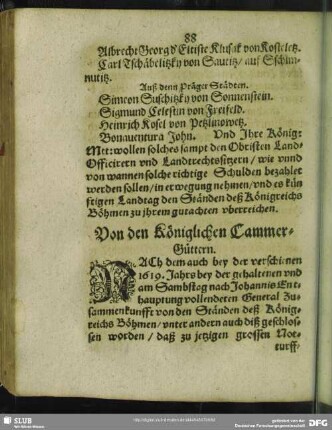 88
Albrecht Georg d' Eltiste Klusak von Kosteletz.
Carl Tschäbelitzky von Sautitz / auf Sschim-
nutitz.
Auß denn Präger Städten.
Simeon Suschitzky von Sonnenstein.
Sigmund Celestin von Freifeld.
Heinrich Kosel von Petzlinowetz.
Bonaventura John. Vnd Ihre König:
Mett wollen solches sampt den Obristen Land-
Officirern vnd Landtrechtssitzern / wie vnnd
von wannen solche richtige Schulden bezahlet
werden sollen / in erwegung nehmen / vnd es kün
ftigen Landtag den Ständen deß Königreichs
Böhmen zu jhrem gutachten vberreichen.
Von den Königlichen Cammer-
Güttern.
NACh dem auch bey der verschienen
1619. Jahrs bey der gehaltenen vnd
am Sambstag nach Johannis Ent
hauptung vollendeten General Zu-
sammenkunfft von den Ständen deß König-
reichs Böhmen / vnter andern auch diß geschlos-
sen worden / daß zu jetzigen grossen Not-
turff-
SLUB
DFG